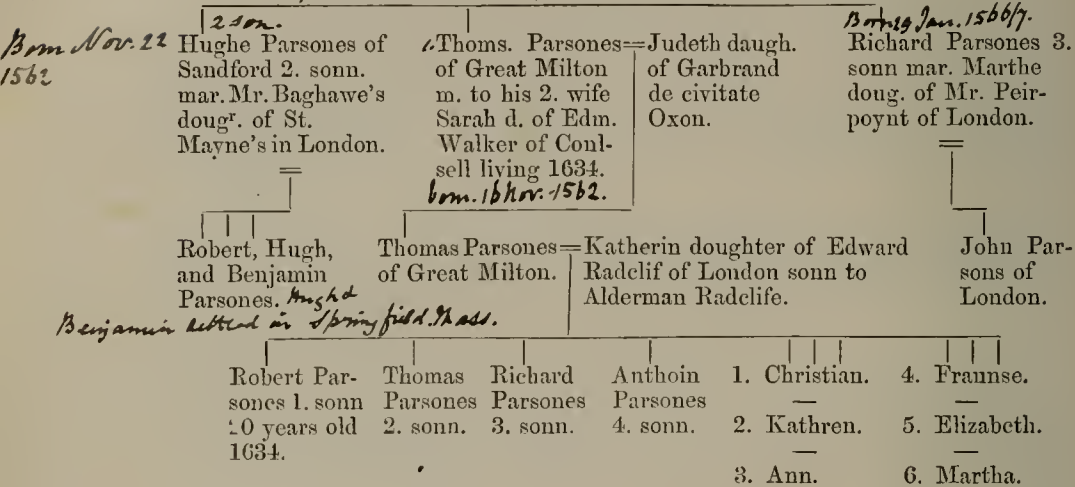 Born Nov. 22
1562
2 son.
Hughe Parsones of
Sandford 2. sonn.
mar. Mr. Baghawe's
dougr. of St.
Mayne's in London.
1. Thoms. Parsones=Judeth daugh.
of Great Milton
m. to his 2. wife
Sarah d. of Edm.
Walker of Coul-
sell living 1634.
born. 16 Nov. 1562.
of Garbrand
de civitate
Oxon.
Born 29 Jan. 1566/7.
Richard Parsones 3.
sonn mar. Marthe
doug. of Mr. Peir-
poynt of London.
Robert, Hugh,
and Benjamin
Parsones. Hugh &
Benjamin settled in Springfield. Mass.
Thomas Parsones=Katherin doughter of Edward
of Great Milton.
Radclif of London sonn to
Alderman Radclife.
John Par-
sons of
London.
Robert Par-
sones 1. sonn
20 years old
1634.
Thomas
Parsones
2. sonn.
Richard
Parsones
3. sonn.
Anthoin
Parsones
4. sonn.
1. Christian.
2. Kathren.
3. Ann.
4. Fraunse.
5. Elizabeth.
6. Martha.